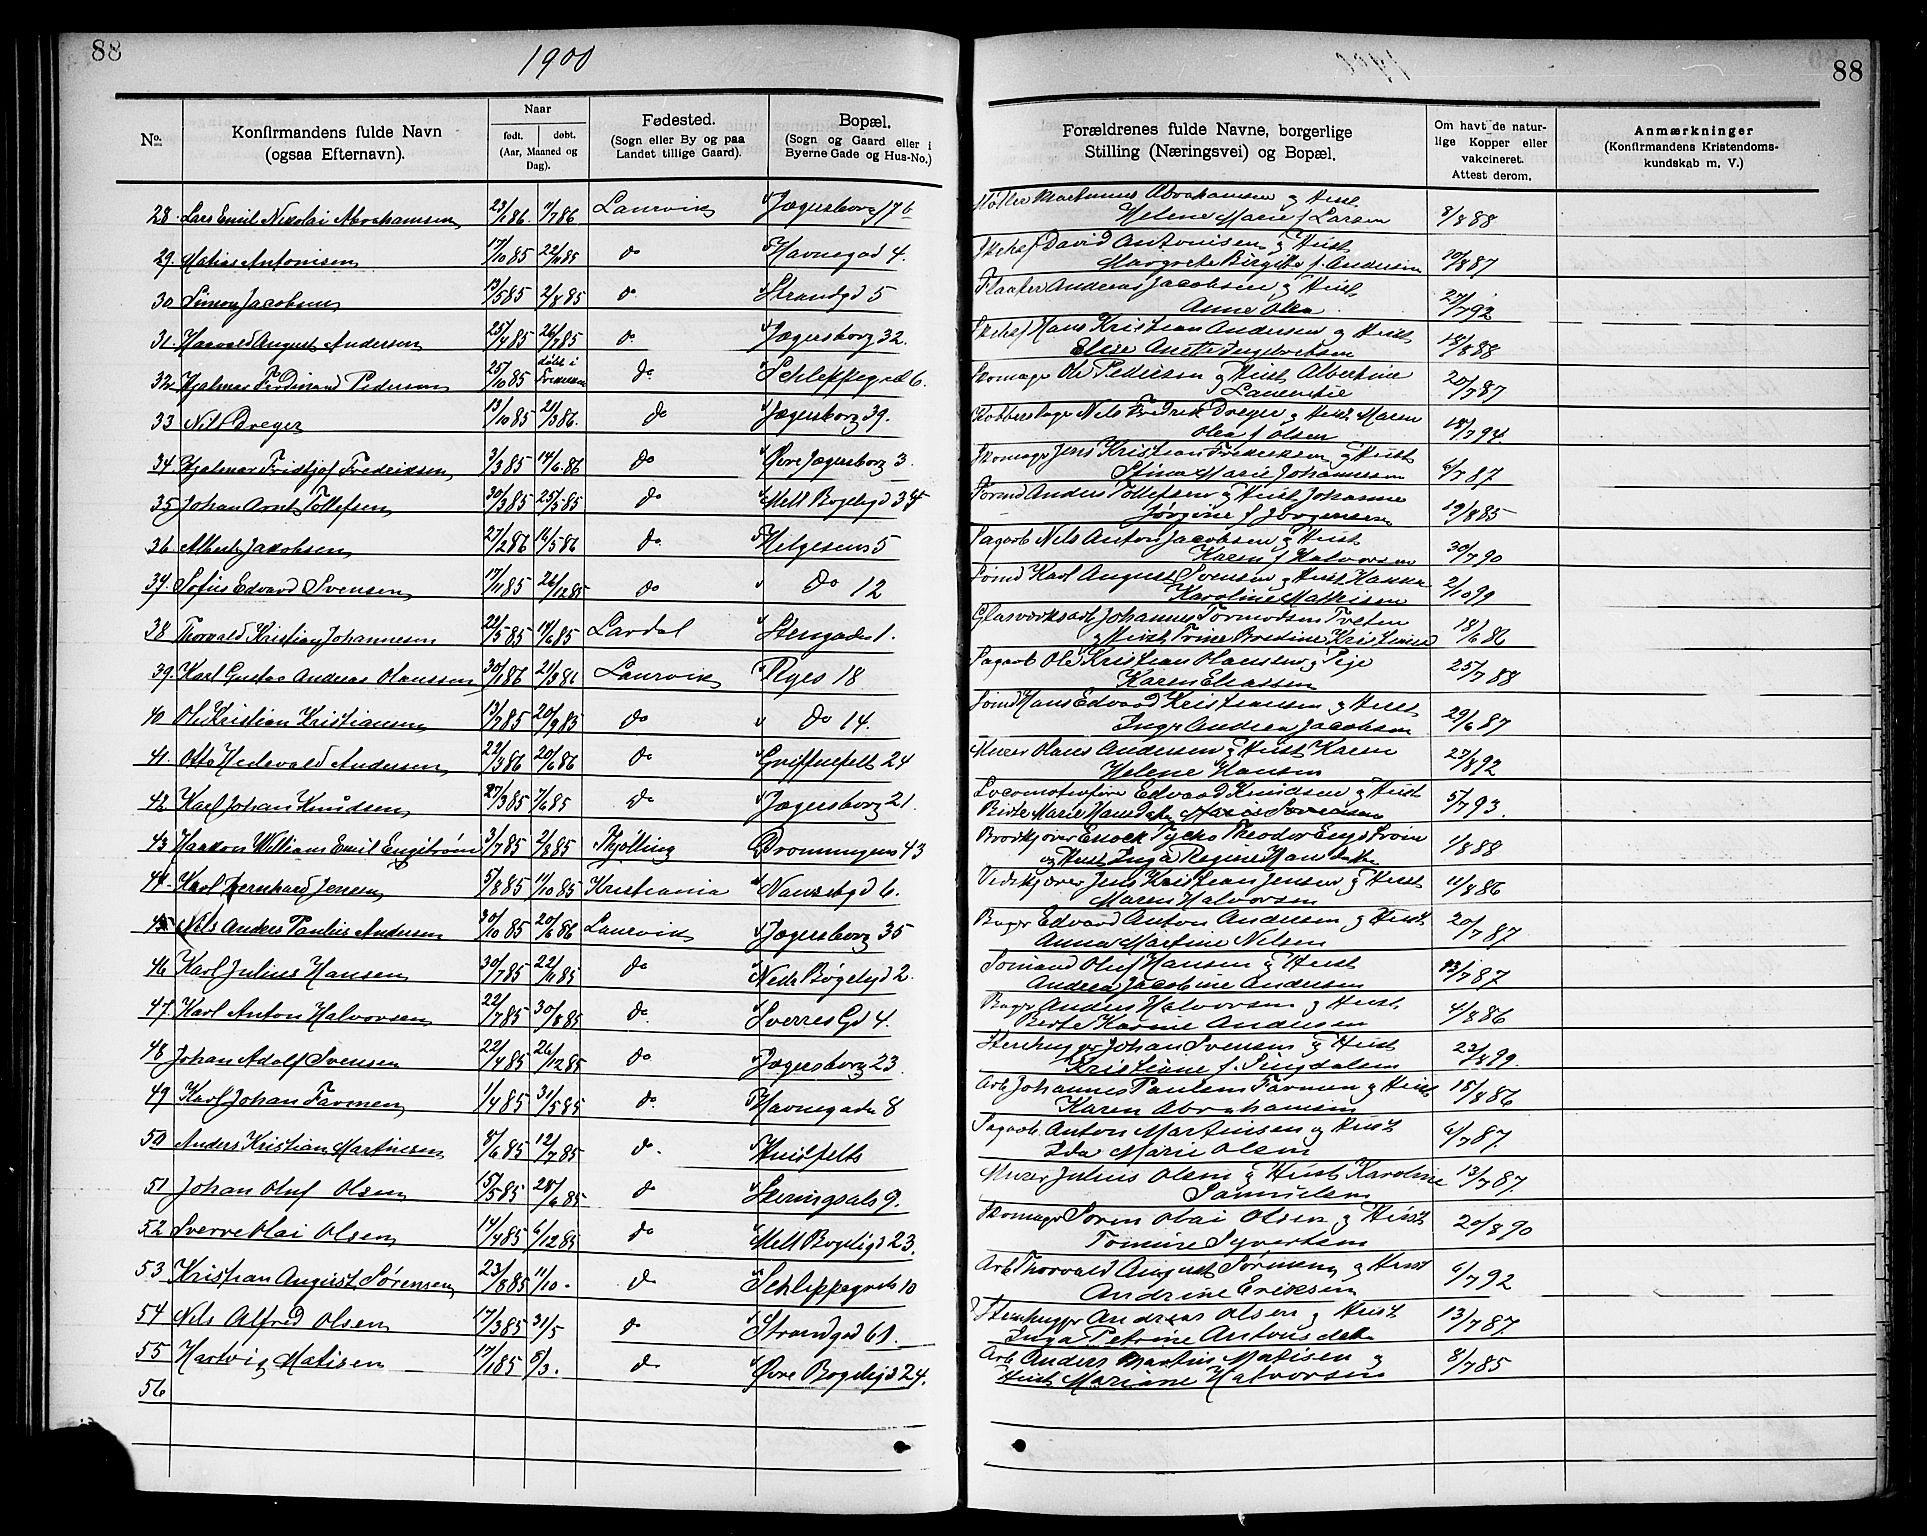 88
1900
No.
Konfirmandens fulde Navn
(ogsaa Efternavn).
Naar
født.
døbt.
(Aar, Maaned og
Dag).
Fødested.
(Sogn eller By og paa
Landet tillige Gaard).
Bopæl.
(Sogn og Gaard eller i
Byerne Gade og Hus-No.)
28. Lars Emil Nikolai Abrahamsen 23/1 86. 11/7 86 Laurvik Jægersborg 17 b
29. Matias Antonisen 17/10 85 22/11 85 do Havnegad 4.
30 Simon Jacobsen 13/5 85 2/8 85 do Strandgd 5
31. Haavald August Andersen 25/4 85 26/7 85 do Jægersborg 32.
32 Hjalmar Ferdinand Pedersen 25/10 85 døbt i do Schleppegrel 6.
33 Nils Dreyer 13/10 85 21/3 86. do Jægersborg 39.
34 Hjalmar Fridtjof Fredriksen 3/3 85 14/6 86 do Øvre Jægersborg 3.
35 Johan Arnt Tollefsen 30/3 85 25/5 85 do Mell Bøgeligd 34
36 Albert Jakobsen 27/2 86 16/5 86 do Helgesens 5
37. Sofus Edvard Svensen 17/11 85 26/12 85 do do 12
38 Thorvald Kristian Johannesen 22/5 85 14/6 85 Lardal Stengaden 1.
39. Karl Gustav Andreas Olaussen 30/1 86 21/3 86 Laurvik Reges 18
40 Ole Kristian Kristiansen 13/7 85 20/9 85 do do 14.
41. Otto Hedevald Andersen 22/3 86 20/6 86 do Griffenfelt 24
42 Karl Johan Knudsen 27/3 85 7/6 85 do Jægersborg 21.
43 Haakon William Emil Engstrøm 3/7 85 2/8 85 Thjølling Dronningens 43
44. Karl Bernhard Jensen 5/8 85 11/10 85 Kristiania Nansetgd 6.
45 Nils Anders Paulius Andersen 30/10 85 20/6 86 Laurvik Jægersborg 35
46 Karl Julius Hansen 30/7 85 22/11 85 do Nedr Bøgeligd 2.
47. Karl Anton Halvorsen 22/7 85 30/8 85 do Sverres Gd 4.
48 Johan Adolf Svensen 22/4 85 26/12 85 do Jægersborg 23.
49 Karl Johan Farmen 1/4 85 31/5 85 do. Havnegaden 8
50 Anders Kristian Martinsen 8/6 85 12/7 85 do. Huidfelts
51 Johan Oluf Olsen 15/5 85 28/6 85 do Steringsals 9.
52 Sverre Olai Olsen 14/4 85 6/12 85 do Mell Bøgeligd 23.
53 Kristian August Sørensen 23/8 85 11/10 - do Schleppegrels 10
54 Nils Alfred Olsen 17/3 85 31/5 do Strandgad 61.
55 Hartvig Matisen 17/1 85 5/3. do Øvre Bøgeligd 24.
56
88
Forældrenes fulde Navne, borgerlige
Stilling (Næringsvei) og Bopæl.
Om havt de natur-
lige Kopper eller
vakcineret.
Attest derom.
Anmærkninger
(Konfirmandens Kristendoms-
kundskab m. V.)
Martinus Abrahamsen og Hust
Helene Marie f Larsen 8/8 88
David Antonisen og Hust
Margrete Birgitte f. Andersen 10/8 87
Andreas Jacobsen og Hust
Anne Olea 27/7 92
Hans Kristian Andersen og Hust
Elise Anette Ingebretsen 18/8 88
Skomagr Ole Pedersen og Hust Albertine
Laurentie 20/7 87
Kobberslagr Nils Fredrik Dreyer og Hust Maren
Olea f Olsen 18/7 94
Skomagr Jens Kristian Fredriksen og Hust
Stina Marie Johannesen 6/7 87
Sømd Anders Tollefsen og Hust Johanne
Jørgine f Jørgensen 19/8 85
Sagarb Nils Anton Jacobsen og Hust
Karen f Halvorsen 30/7 90
Sømd Karl August Svensen og Hust Hanna
Karoline Mathisen 2/10 99
Glasværksarb Johannes Tormodsen Tveten
og Hust Trine Bredine Kristensen 18/6 86
Sagarb Ole Kristian Olaussen og Pige
Karen Eliassen 25/7 88
Sømd Hans Edvard Kristiansen og Hust
Inger Andrea Jacobsen 29/6 87
Murer Olaus Andersen og Hust Karen
Helene Hansen 23/8 92
Locomotivfører Edvard Knudsen og Hust
Birte Marie Hansdatr 5/7 93.
Brodkjører Enock Tycho Theodor Engstrøm
og Hust Inga Regine Hansdatter 1/8 88
Vedkjører Jens Kristian Jensen og Hust
Maren Halvorsen 11/8 86
Bager Edvard Anton Andersen og Hust
Anna Martine Nilsen 20/7 87
Sømand Oluf Hansen og Hust
Andrea Jacobine Andersen 13/7 87
Bager Anders Halvorsen og Hust
Berte Karine Andersen 4/8 86
Stenhugger Johan Svensen og Hust
Kristiane f. Singdalsen 23/8 99.
Arb Johannes Paulsen Farmen og Hust
Karen Abrahamsen 18/8 86
Sagarb. Anton Martinsen og Hust
Ida Marie Olsen 6/7 87.
Murer Julius Olsen og Hust Karoline
Samuelsen 13/7 87.
Skomagr Søren Olai Olsen og Hust
Tomine Syvertsen 20/8 90
Arb Thorvald August Sørensen og Hust
Andrine Eriksen 6/7 92
Stenhuggr Andreas Olsen og Hust
Inga Petrine Antonsdatr 13/7 87.
Arb Anders Martin Matisen og
Hust Mariane Halvorsen 8/7 85